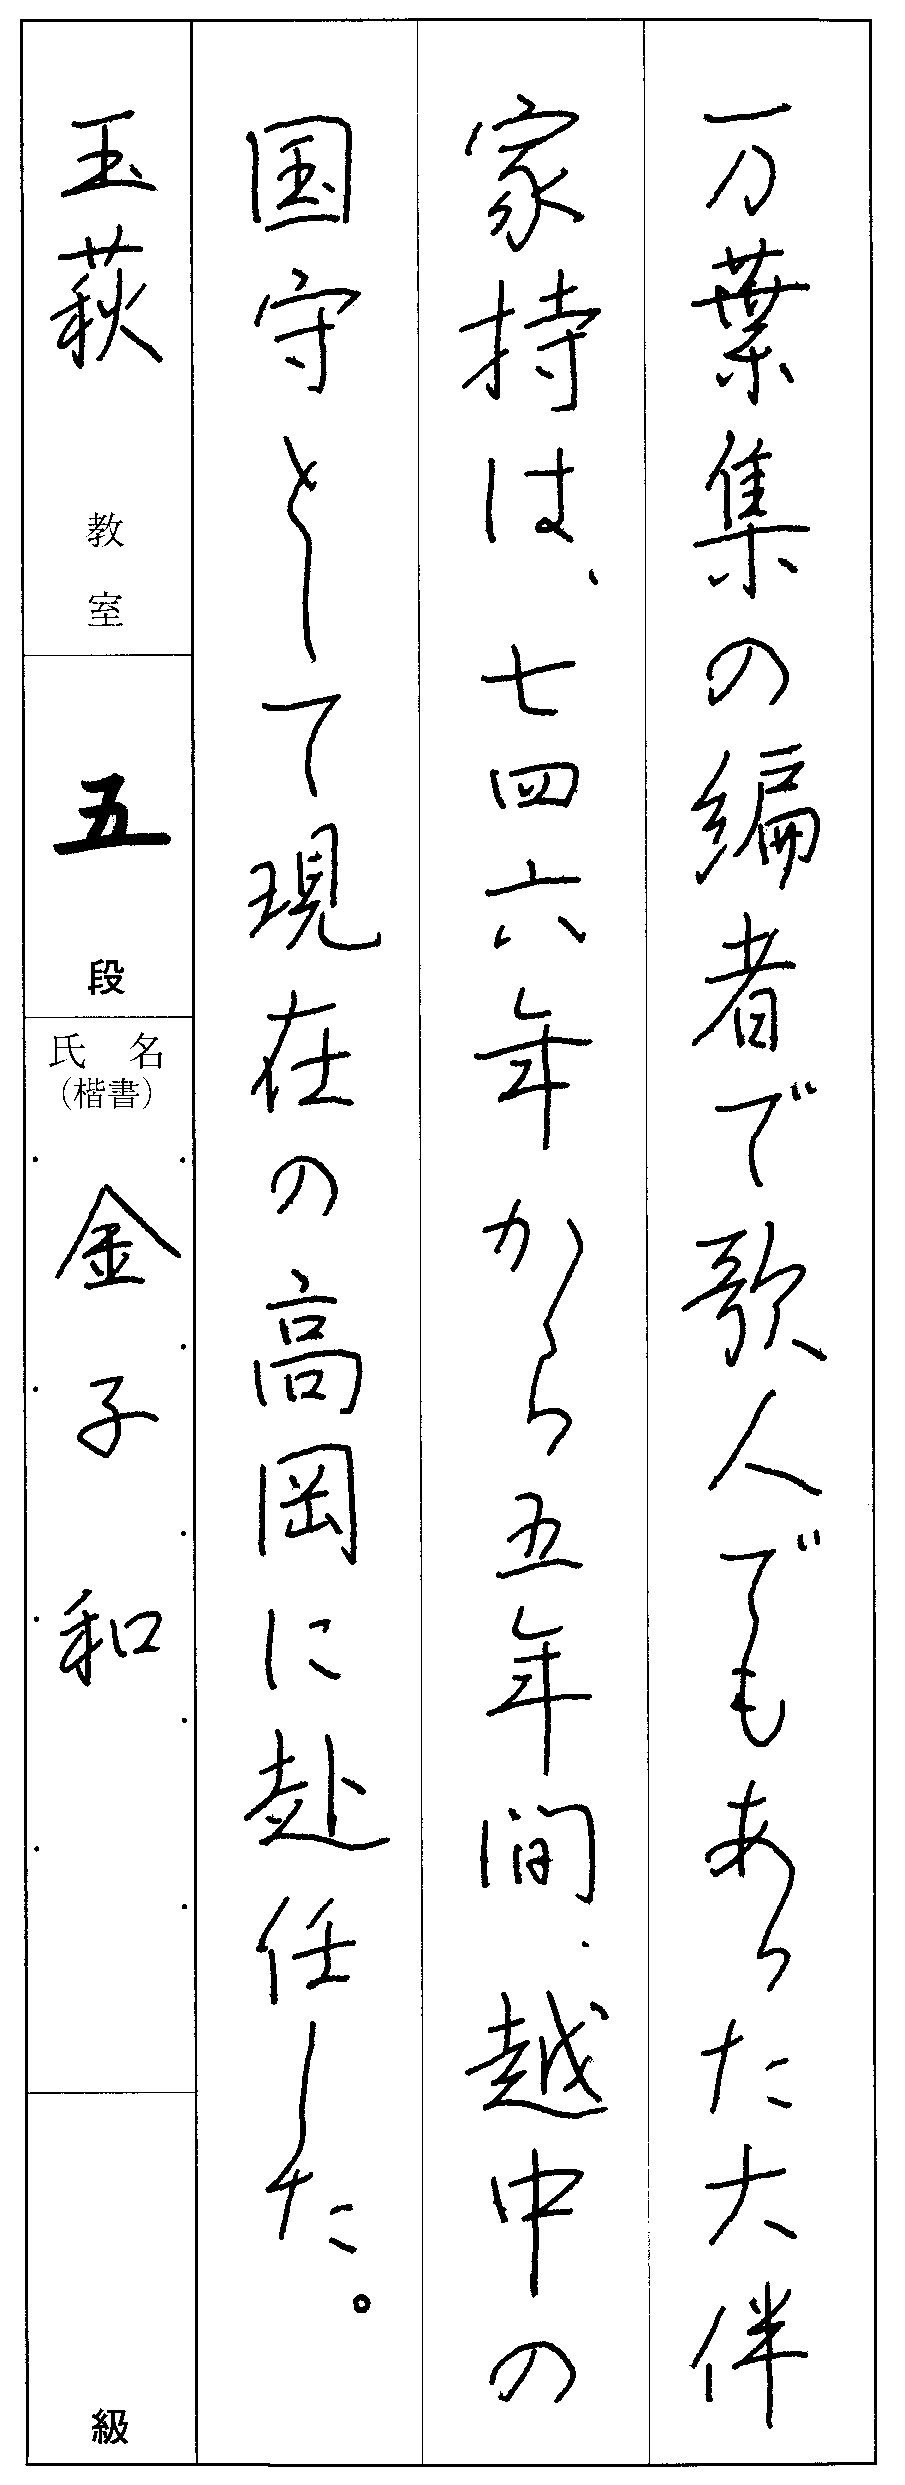 万葉集の編者で歌人でもあった大伴
家持は、七四六年から五年間、越中の
国守として現在の高岡に赴任した。
玉萩 教室
五 段
氏名
(楷書)
金子 和
級